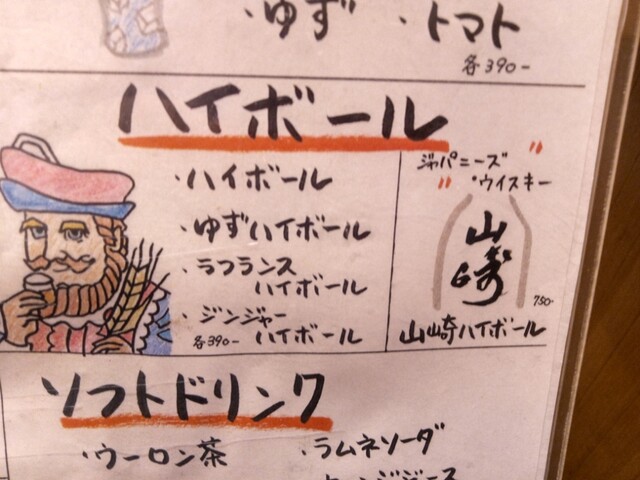 ・ゆず ・トマト
各390-
ハイボール
・ハイボール
・ゆずハイボール
・ラフランス
ハイボール
・ジンジャー
ハイボール
各390-
"ジャパニーズ
・ウイスキー"
山崎
750-
山崎ハイボール
ソフトドリンク
・ウーロン茶
・ラムネソーダ